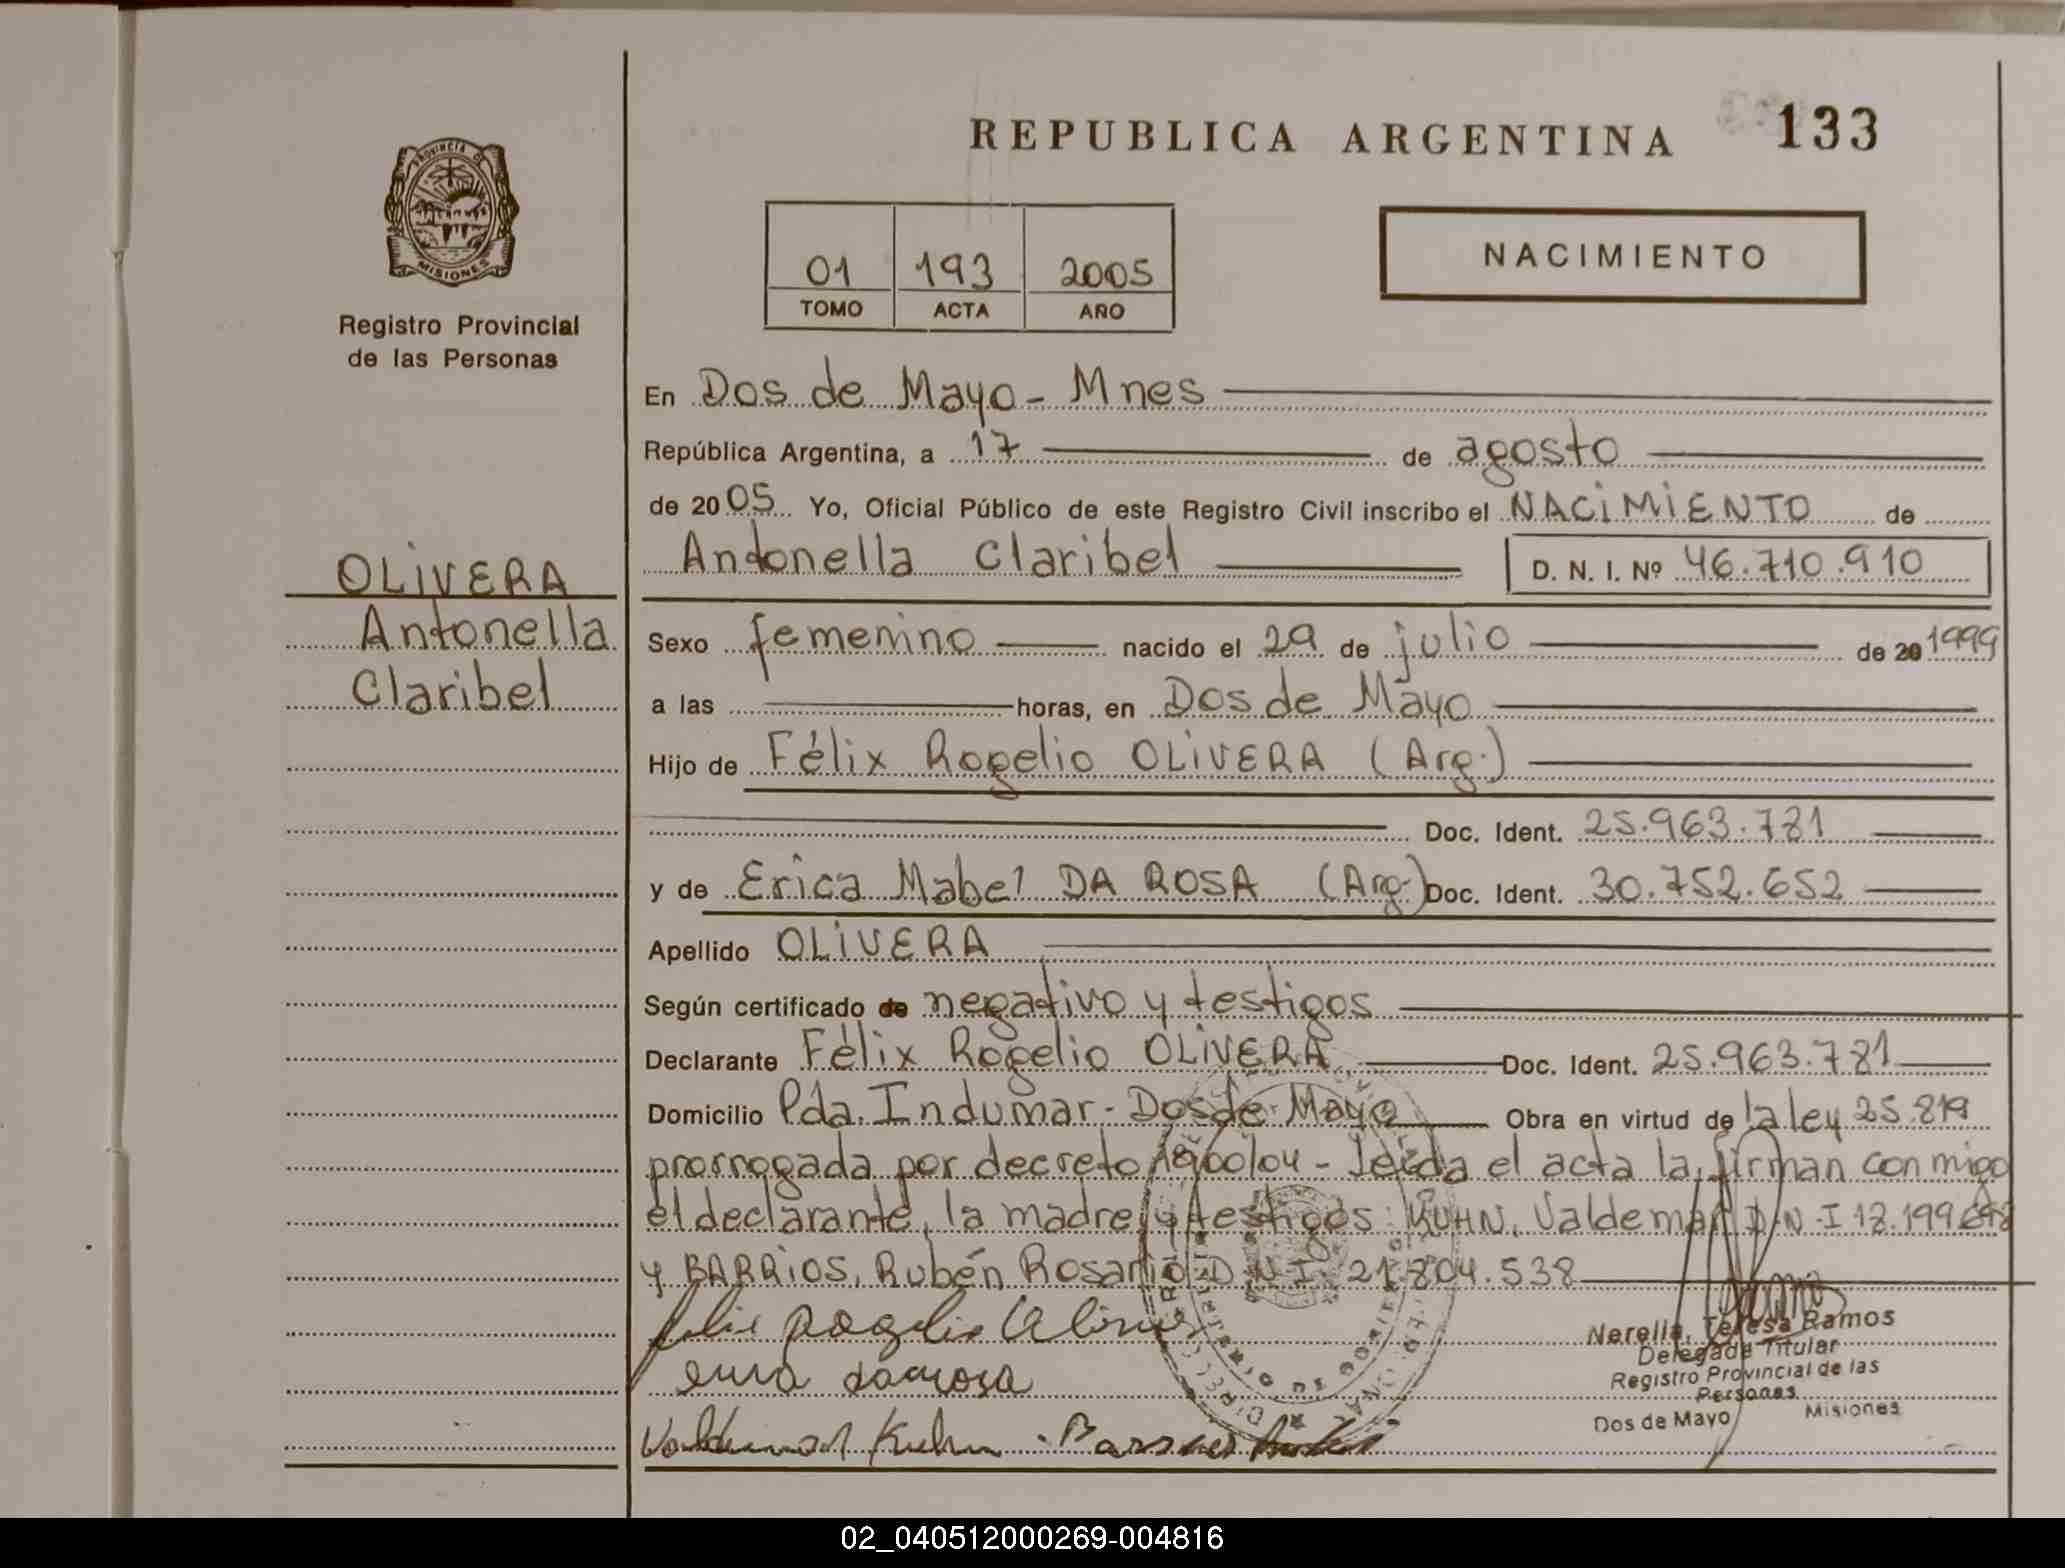 REPUBLICA ARGENTINA 133
PROVINCIA DE
MISIONES
Registro Provincial
de las Personas
01 193 2005
TOMO ACTA AÑO
NACIMIENTO
OLIVERA
Antonella
Claribel
En Dos de Mayo - Mnes
República Argentina, a 17 de agosto
de 2005 Yo, Oficial Público de este Registro Civil inscribo el NACIMIENTO de
Antonella Claribel D. N. I. Nº 46.710.910
Sexo femenino nacido el 29 de julio de 20 1999
a las horas, en Dos de Mayo
Hijo de Félix Rogelio OLIVERA (Arg.)
Doc. Ident. 25.963.781
y de Erica Mabel DA ROSA (Arg.) Doc. Ident. 30.752.652
Apellido OLIVERA
Según certificado de negativo y testigos
Declarante Félix Rogelio OLIVERA Doc. Ident. 25.963.781
Domicilio Pda. Indumar - Dos de Mayo Obra en virtud de la ley 25.819
prorrogada por decreto 1900/04 - Leída el acta la firman conmigo
el declarante, la madre y testigos: KUHN, Valdemar D.N.I 18.199.
y BARRIOS, Rubén Rosario D.N.I. 21.804.538
Nerella, Teresa Ramos
Delegada Titular
Registro Provincial de las
Personas
Dos de Mayo Misiones
Valdemar Kuhn
02_040512000269-004816